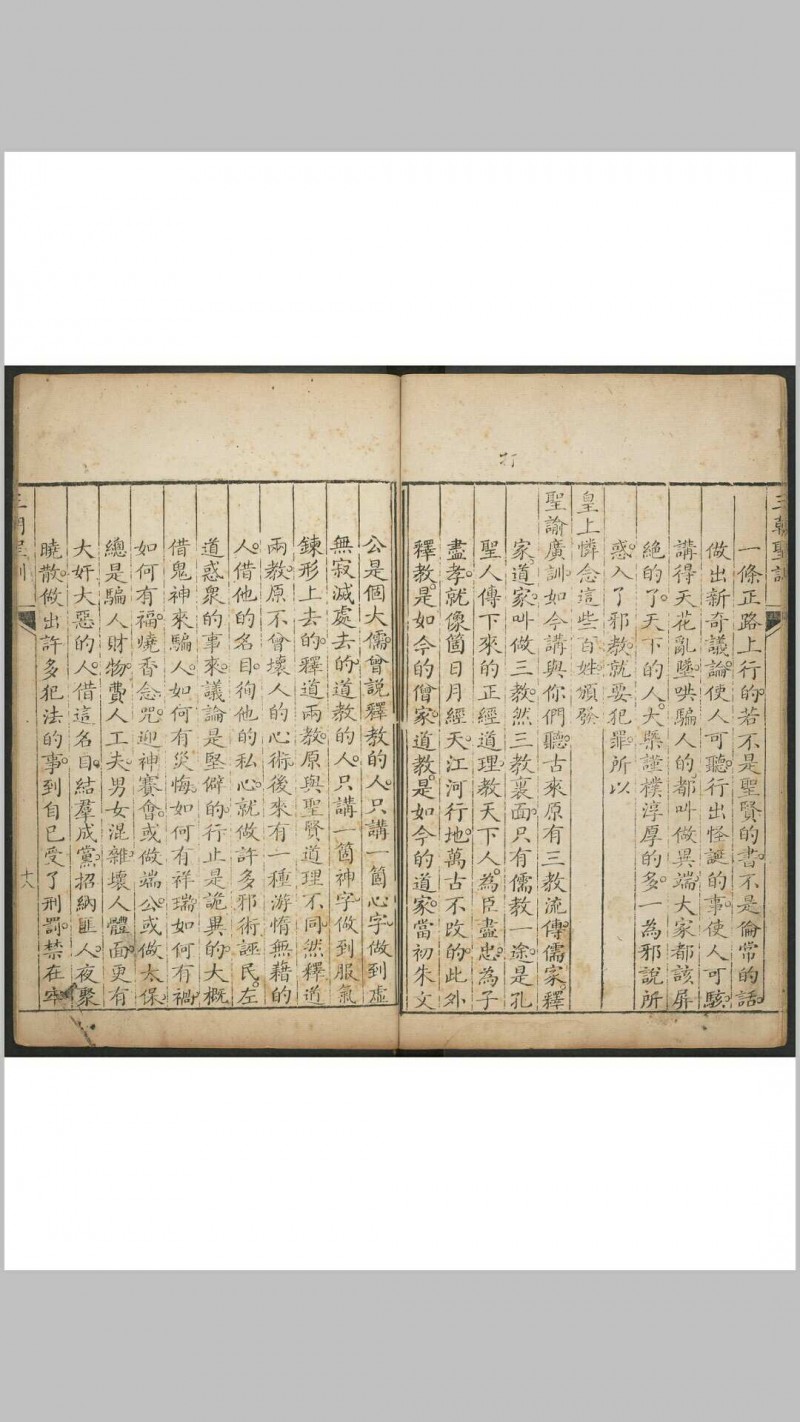 三朝聖訓
一條正路上行的若不是聖賢的書不是倫常的話
做出新奇議論使人可聽行出怪誕的事使人可駭
講得天花亂墜哄騙人的都叫做異端大家都該屏
絕的了天下的人大槩謹樸淳厚的多一為邪說所
惑入了邪教就要犯罪所以
皇上憐念這些百姓頒發
聖諭廣訓如今講與你們聽古來原有三教流傳儒家釋
家道家叫做三教然三教裏面只有儒教一途是孔
聖人傳下來的正經道理教天下人為臣盡忠為子
盡孝就像箇日月經天江河行地萬古不改的此外
釋教是如今的僧家道教是如今的道家當初朱文
公是個大儒曾說釋教的人只講一箇心字做到虛
無寂滅處去的道教的人只講一箇神字做到服氣
鍊形上去的釋道兩教原與聖賢道理不同然釋道
兩教原不曾壞人的心術後來有一種游惰無藉的
人借他的名目徇他的私心就做許多邪術誣民左
道惑衆的事來議論是堅僻的行止是詭異的大概
借鬼神來騙人如何有災悔如何有祥瑞如何有禍
如何有福燒香念咒迎神賽會或做端公或做太保
總是騙人財物費人工夫男女混雜壞人體面更有
大奸大惡的人借這名目結羣成黨招納匪人夜聚
曉散做出許多犯法的事到自已受了刑罰禁在牢
三朝聖訓
十八